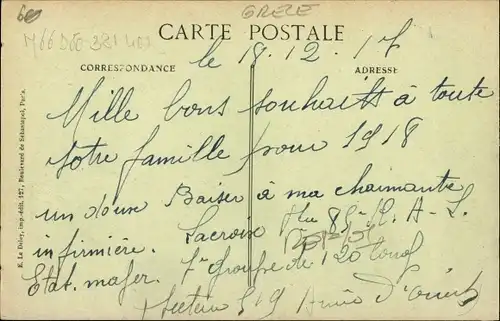 60
GRECE
M66 D06 381 401
CARTE POSTALE
le 18.12.17
CORRESPONDANCE
ADRESSE
Mille bons souhaits à toute
votre famille pour 1918
un doux Baiser à ma charmante
infirmière. Lacroix 85e R. A. L.
Etat. major. 7e groupe de 120 long
Secteur 519 Armée d'orient
E. Le Deley, imp.-édit. 127, Boulevard de Sébastopol, Paris.